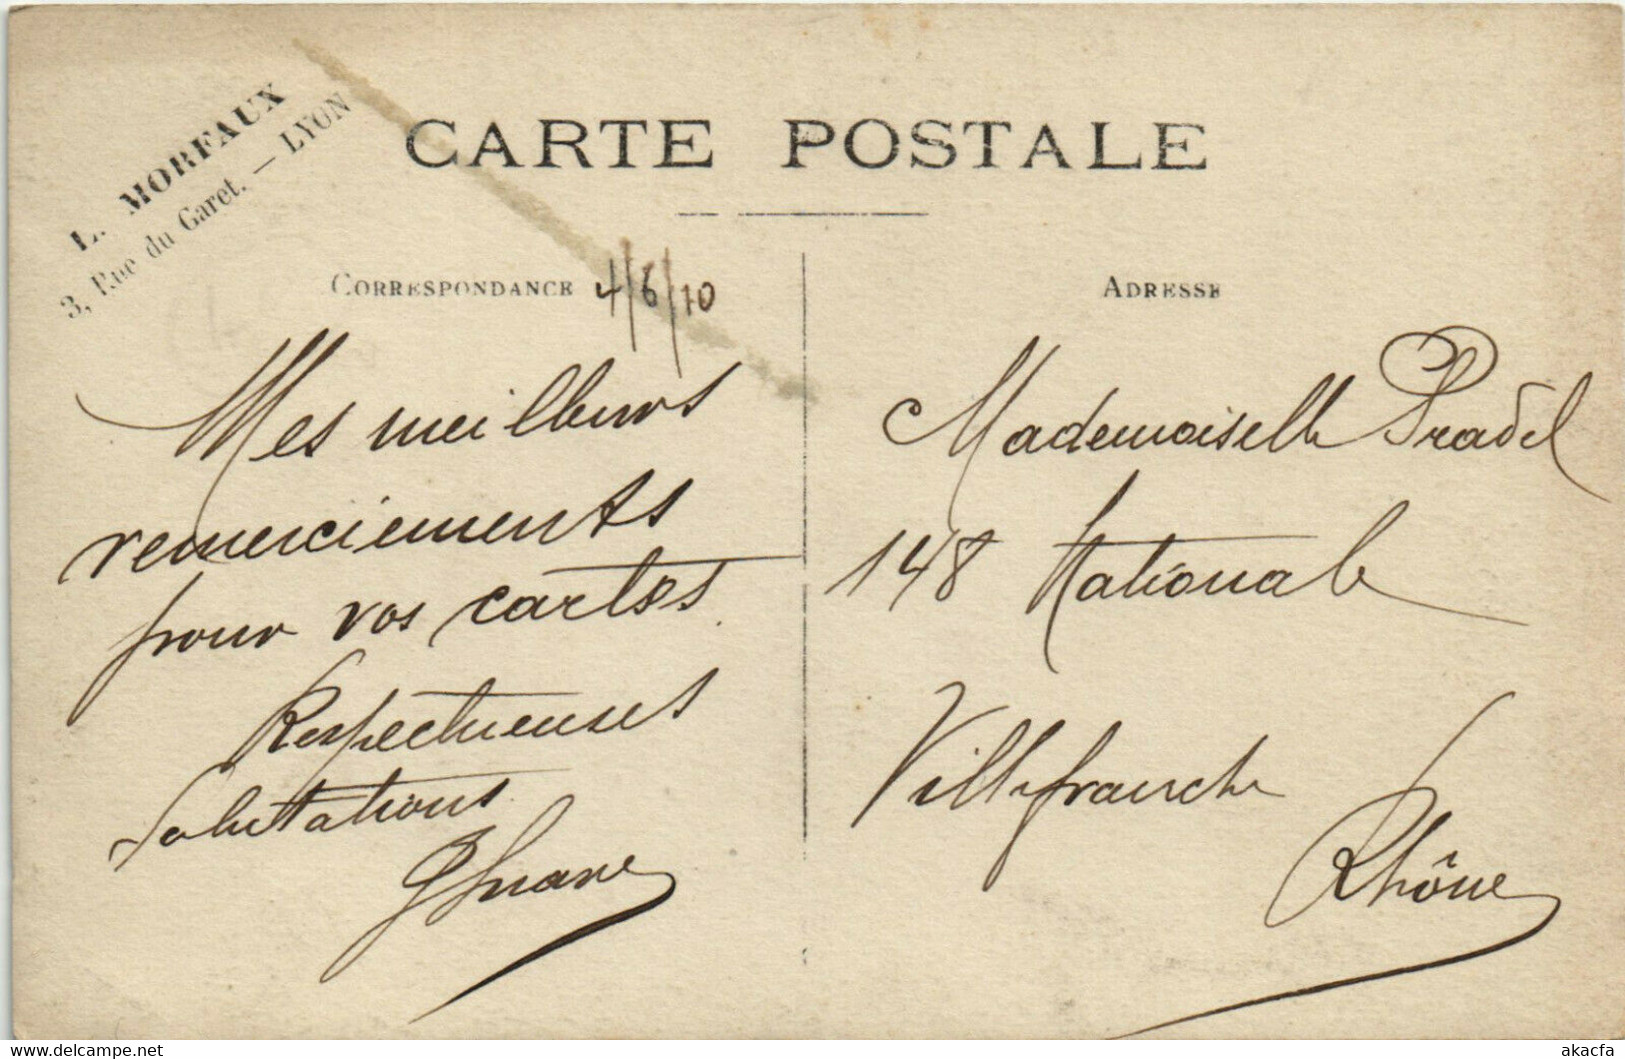 L. MOREAUX
3, Rue du Garet. — LYON
CARTE POSTALE
CORRESPONDANCE 4/6/10
Mes meilleurs
remerciements
pour vos cartes.
Respectueuses
Salutations
ADRESSE
Mademoiselle Pradel
148 Nationale
Villefranche
Rhône
akacfa